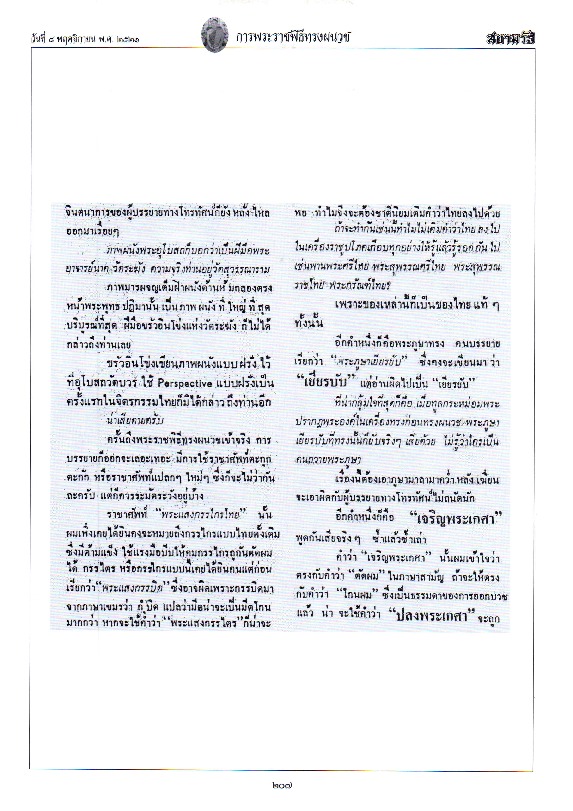 วันที่ ๘ พฤศจิกายน พ.ศ. ๒๕๒๑
การพระราชพิธีทรงผนวช
สยามรัฐ
จินตนาการของผู้บรรยายทางโทรทัศน์ก็ยัง หลั่ง ไหล
ออกมาเรื่อยๆ
ภาพผนังพระอุโบสถก็บอกว่าเป็นฝีมือพระ
อาจารย์นาค วัดระฆัง ความจริงท่านอยู่วัดสุวรรณาราม
ภาพมารผจญเต็มฝาผนังด้านหน้ามีกลองตรง
หน้าพระพุทธ ปฏิมานั้น เป็น ภาพ ผนัง ที่ ใหญ่ ที่ สุด
บริบูรณ์ที่สุด ฝีมือขรัวอินโข่งแห่งวัดระฆัง ก็ไม่ได้
กล่าวถึงท่านเลย
ขรัวอินโข่งเขียนภาพผนังแบบ ฝรั่ง ไว้
ที่อุโบสถวัดบวร์ ใช้ Perspective แบบฝรั่งเป็น
ครั้งแรกในจิตรกรรมไทยก็มิได้กล่าว ถึงท่านอีก
น่าเสียดายครับ
ครั้นถึงพระราชพิธีทรงผนวชเข้าจริง การ
บรรยายก็ออกจะเลอะเทอะ มีการใช้ราชาศัพท์ตะกุก
ตะกัก หรือราชาศัพท์แปลกๆ ใหม่ๆ ซึ่งก็จะไม่ว่ากัน
ละครับ แต่ก็ควรระมัดระวังอยู่บ้าง
ราชาศัพท์ “พระแสงกรรไกรไทย” นั้น
ผมเพิ่งเคยได้ยินคงจะหมายถึงกรรไกรแบบไทยดั้งเดิม
ซึ่งมีด้ามแข็ง ใช้แรงมือบีบให้คมกรรไกรถูกันตัดผม
ได้ กรรไตร หรือกรรไกรแบบนี้เคยได้ยินคนแต่ก่อน
เรียกว่า“พระแสงกรรบิด” ซึ่งอาจผิดเพราะกรรบิดมา
จากภาษาเขมรว่า กํบิด แปลว่ามีดน่าจะเป็นมีดโกน
มากกว่า หากจะใช้คำว่า “พระแสงกรรไตร” ก็น่าจะ
พอ ทำไมจึงจะต้องชาตินิยมเติมคำว่าไทยลงไปด้วย
ถ้าจะทำกันเช่นนี้ทำไมไม่เติมคำว่าไทย ลงไป
ในเครื่องราชูปโภคเกือบทุกอย่างให้รู้แล้วรู้รอด กัน ไป
เช่นพานพระศรีไทย พระสุพรรณศรีไทย พระสุพรรณ
ราชไทย พระกรัณฑ์ไทย
เพราะของเหล่านี้ก็เป็นของไทย แท้ ๆ
ทั้งนั้น
อีกคำหนึ่งก็คือพระภูษาทรง คนบรรยาย
เรียกว่า “พระภูษาเยียรยับ” ซึ่งคงจะเขียนมา ว่า
“เยียรบับ” แต่อ่านผิดไปเป็น “เยียรยับ”
ที่น่ากลุ้มใจที่สุดก็คือ เมื่อทูลกระหม่อมพระ
ปรากฏพระองค์ในเครื่องทรงก่อนทรงผนวช พระภูษา
เยียรบับที่ทรงนั้นก็ยับจริงๆ เสียด้วย ไม่รู้ว่าใครเป็น
คนถวายพระภูษา
เรื่องนี้ต้องเอาภูษามาลามาคว่ำหลังเฆี่ยน
จะเอาผิดกับผู้บรรยายทางโทรทัศน์ไม่ถนัดนัก
อีกคำหนึ่งก็คือ “เจริญพระเกศา”
พูดกันเสียจริง ๆ ซ้ำแล้วซ้ำเล่า
คำว่า “เจริญพระเกศา” นั้นผมเข้าใจว่า
ตรงกับคำว่า “ตัดผม” ในภาษาสามัญ ถ้าจะให้ตรง
กับคำว่า “โกนผม” ซึ่งเป็นธรรมดาของการออกบวช
แล้ว น่า จะใช้คำว่า “ปลงพระเกศา” จะถูก
๒๐๗